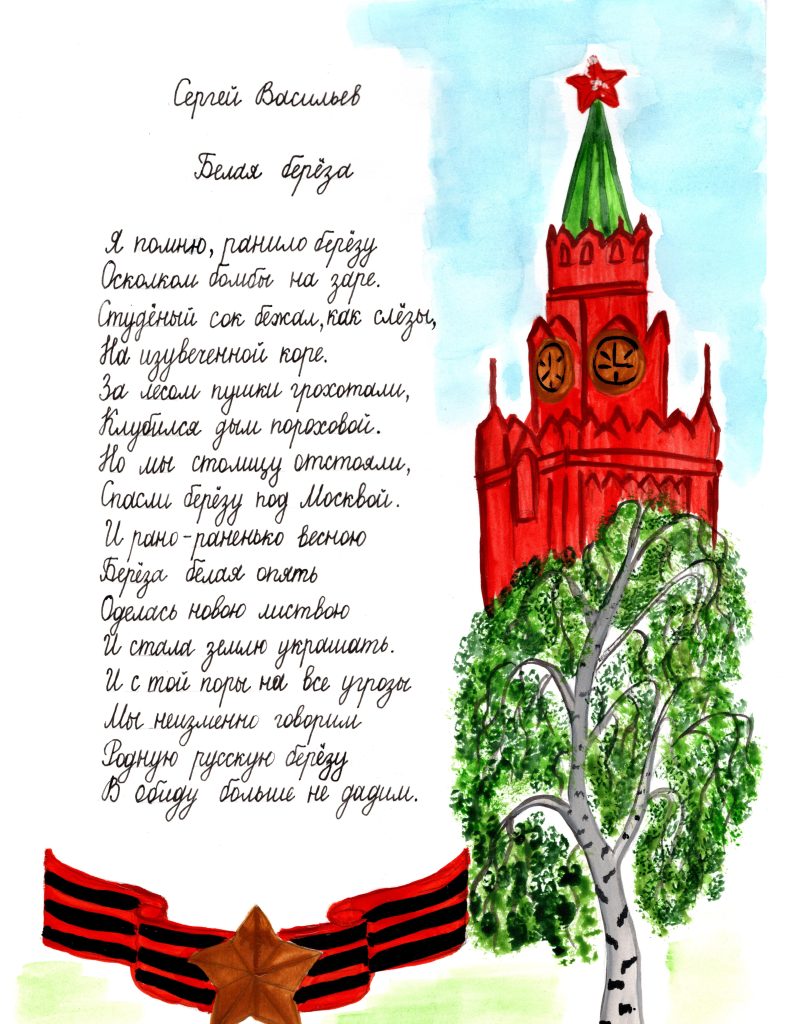 Сергей Васильев
Белая берёза
Я помню, ранило берёзу
Осколком бомбы на заре.
Студёный сок бежал, как слёзы,
На изувеченной коре.
За лесом пушки грохотали,
Клубился дым пороховой.
Но мы столицу отстояли,
Спасли берёзу под Москвой.
И рано-раненько весною
Берёза белая опять
Оделась новою листвою
И стала землю украшать.
И с той поры на все угрозы
Мы неизменно говорим
Родную русскую берёзу
В обиду больше не дадим.